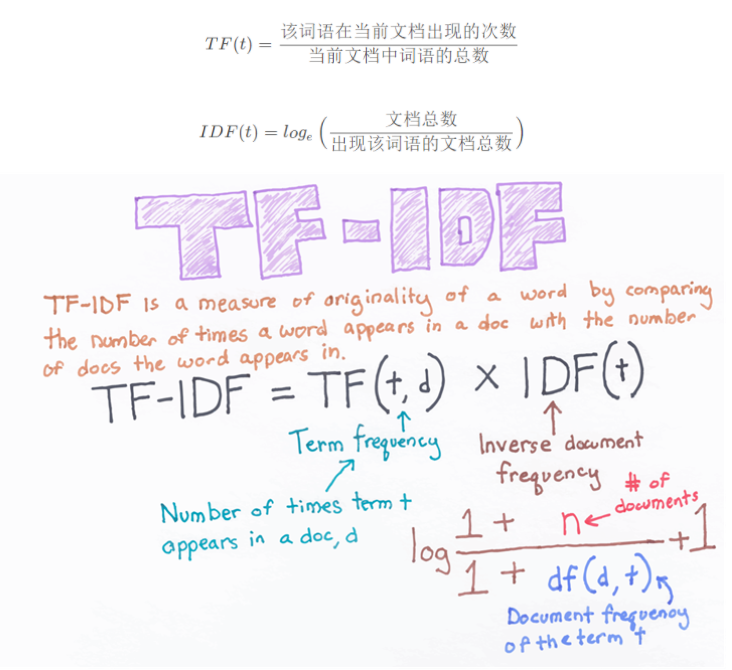 TF(t) = 该词语在当前文档出现的次数 / 当前文档中词语的总数
IDF(t) = logₑ ( 文档总数 / 出现该词语的文档总数 )
TF-IDF
TF-IDF is a measure of originality of a word by comparing
the number of times a word appears in a doc with the number
of docs the word appears in.
TF-IDF = TF(t, d) × IDF(t)
Term frequency
Inverse document
frequency
Number of times term t
appears in a doc, d
# of
documents
log 1 + n / 1 + df(d, t) + 1
Document frequency
of the term t